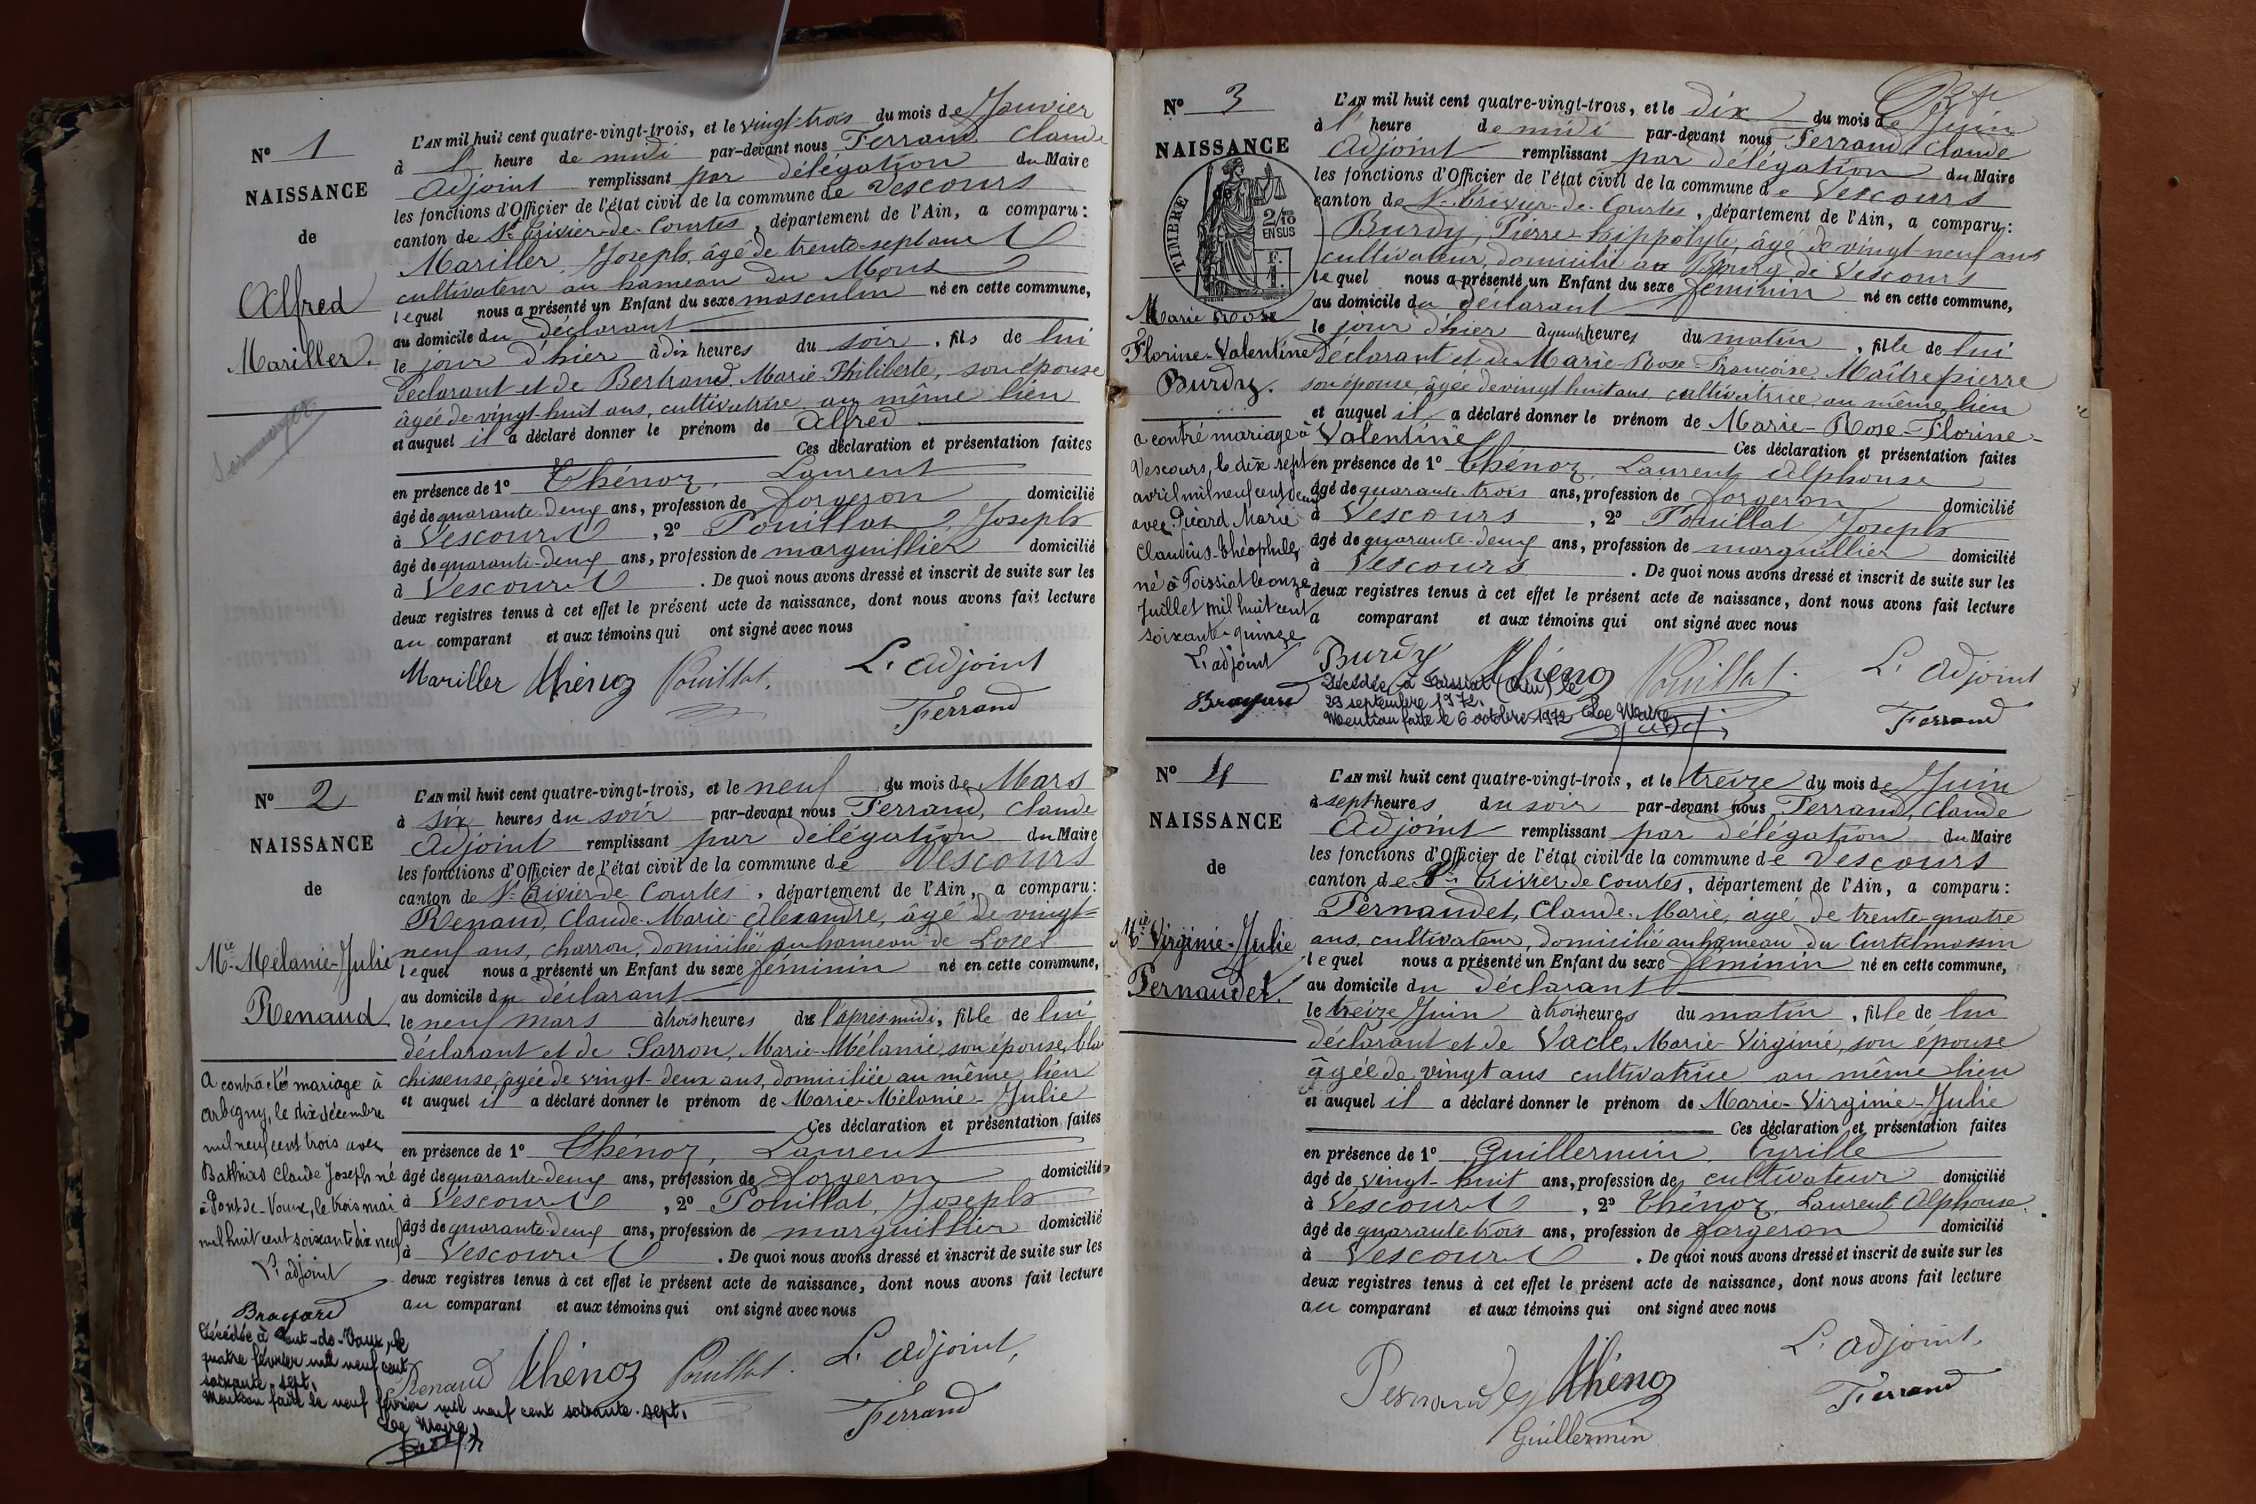 N° 1
NAISSANCE
de
Alfred
Mariller.
L'AN mil huit cent quatre-vingt-trois, et le vingt-trois du mois de Janvier
à 1 heure de midi par-devant nous Ferrand Claude
Adjoint remplissant par délégation du Maire
les fonctions d'Officier de l'état civil de la commune de Vescours
canton de St Trivier-de-Courtes, département de l'Ain, a comparu:
Mariller Joseph, âgé de trente-sept ans
cultivateur au hameau du Mons
lequel nous a présenté un Enfant du sexe masculin né en cette commune,
au domicile du déclarant
le jour d'hier à dix heures du soir, fils de lui
déclarant et de Bertrand Marie-Philiberte, son épouse
âgée de vingt huit ans, cultivatrice au même lieu
et auquel il a déclaré donner le prénom de Alfred
Ces déclaration et présentation faites
en présence de 1° Thénoz, Laurent
âgé de quarante-deux ans, profession de forgeron domicilié
à Vescours, 2° Pouillat, Joseph
âgé de quarante-deux ans, profession de marguillier domicilié
à Vescours. De quoi nous avons dressé et inscrit de suite sur les
deux registres tenus à cet effet le présent acte de naissance, dont nous avons fait lecture
au comparant et aux témoins qui ont signé avec nous
Mariller Thénoz Pouillat. L'Adjoint
Ferrand
N° 2
NAISSANCE
de
Mie-Mélanie-Julie
Renaud
a contracté mariage à
Arbigny, le dix décembre
mil neuf cent trois avec
Bathias Claude Joseph né
à Pont-de-Vaux, le trois mai
mil huit cent soixante dix neuf
L'adjoint
Brayard
Décédée à Pont-de-Vaux, le
quatre février mil neuf cent
soixante-sept.
Mention faite le neuf février mil neuf cent soixante-sept.
Le Maire,
L'AN mil huit cent quatre-vingt-trois, et le neuf du mois de Mars
à six heures du soir par-devant nous Ferrand, Claude
Adjoint remplissant par délégation du Maire
les fonctions d'Officier de l'état civil de la commune de Vescours
canton de St Trivier de Courtes, département de l'Ain, a comparu:
Renaud, Claude-Marie-Alexandre, âgé de vingt-
neuf ans, charron, domicilié au hameau de
lequel nous a présenté un Enfant du sexe féminin né en cette commune,
au domicile du déclarant
le neuf mars à trois heures de l'après-midi, fille de lui
déclarant et de Sarron, Marie-Mélanie, son épouse, bla
chisseuse, âgée de vingt-deux ans, domiciliée au même lieu
et auquel il a déclaré donner le prénom de Marie-Mélanie-Julie
Ces déclaration et présentation faites
en présence de 1° Thénoz, Laurent
âgé de quarante-deux ans, profession de forgeron domicilié
à Vescours, 2° Pouillat, Joseph
âgé de quarante-deux ans, profession de marguillier domicilié
à Vescours. De quoi nous avons dressé et inscrit de suite sur les
deux registres tenus à cet effet le présent acte de naissance, dont nous avons fait lecture
au comparant et aux témoins qui ont signé avec nous
Renaud Thénoz Pouillat. L'Adjoint,
Ferrand
N° 3
NAISSANCE
TIMBRE
2/10 EN SUS
F. 1.
Marie Rose
Florine-Valentine
Burdy.
a contré mariage à
Vescours, le dix sept
avril mil neuf cent deux
avec Picard Marie
Claudius-Théophile,
né à Foissiat le onze
Juillet mil huit cent
soixante-quinze
L'adjoint
Brayard
L'AN mil huit cent quatre-vingt-trois, et le dix du mois de Juin
à 1 heure de midi par-devant nous Ferrand Claude
Adjoint remplissant par délégation du Maire
les fonctions d'Officier de l'état civil de la commune de Vescours
canton de St Trivier-de-Courtes, département de l'Ain, a comparu:
Burdy, Pierre-hippolyte, âgé de vingt neuf ans
cultivateur, domicilié au Bourg de Vescours
lequel nous a présenté un Enfant du sexe féminin né en cette commune,
au domicile du déclarant
le jour d'hier à quatre heures du matin, fille de lui
déclarant et de Marie-Rose-Françoise Maîtrepierre
son épouse, âgée de vingt huit ans cultivatrice au même lieu
et auquel il a déclaré donner le prénom de Marie-Rose-Florine-
Valentine
Ces déclaration et présentation faites
en présence de 1° Thénoz Laurent Alphonse
âgé de quarante-trois ans, profession de forgeron domicilié
à Vescours, 2° Pouillat Joseph
âgé de quarante-deux ans, profession de marguillier domicilié
à Vescours. De quoi nous avons dressé et inscrit de suite sur les
deux registres tenus à cet effet le présent acte de naissance, dont nous avons fait lecture
a comparant et aux témoins qui ont signé avec nous
Burdy Thénoz Pouillat. L'Adjoint
Ferrand
Décédée à (Ain) le
23 septembre 1972.
Mention faite le 6 octobre 1972 Le Maire
N° 4
NAISSANCE
de
Mie Virginie-Julie
Pernaudet.
L'AN mil huit cent quatre-vingt-trois, et le treize du mois de Juin
à sept heures du soir par-devant nous Ferrand, Claude
Adjoint remplissant par délégation du Maire
les fonctions d'Officier de l'état civil de la commune de Vescours
canton de St Trivier de Courtes, département de l'Ain, a comparu:
Pernaudet, Claude-Marie, âgé de trente-quatre
ans, cultivateur, domicilié au hameau du Curtelmassin
lequel nous a présenté un Enfant du sexe féminin né en cette commune,
au domicile du déclarant
le treize Juin à trois heures du matin, fille de lui
déclarant et de Vacle, Marie-Virginie, son épouse
âgée de vingt ans cultivatrice au même lieu
et auquel il a déclaré donner le prénom de Marie-Virginie-Julie
Ces déclaration et présentation faites
en présence de 1° Guillermin Cyrille
âgé de vingt-huit ans, profession de cultivateur domicilié
à Vescours, 2° Thénoz, Laurent Alphonse.
âgé de quarante trois ans, profession de forgeron domicilié
à Vescours. De quoi nous avons dressé et inscrit de suite sur les
deux registres tenus à cet effet le présent acte de naissance, dont nous avons fait lecture
au comparant et aux témoins qui ont signé avec nous
Pernaudet Thénoz L'Adjoint,
Guillermin Ferrand